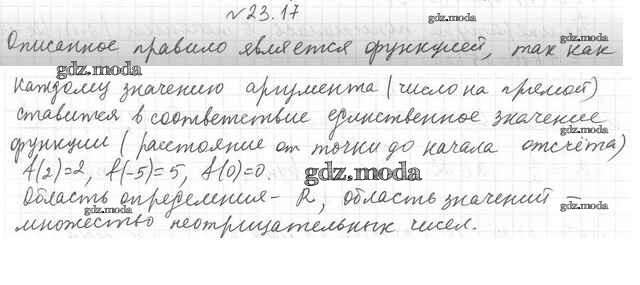 №23.17
gdz.moda
Описанное правило является функцией, так как
gdz.moda
gdz.moda
каждому значению аргумента (число на прямой)
ставится в соответствие единственное значение
gdz.moda
функции (расстояние от точки до начала отсчёта)
f(2)=2, f(-5)=5, f(0)=0.
gdz.moda
Область определения - R, область значений -
gdz.moda
gdz.moda
множество неотрицательных чисел.